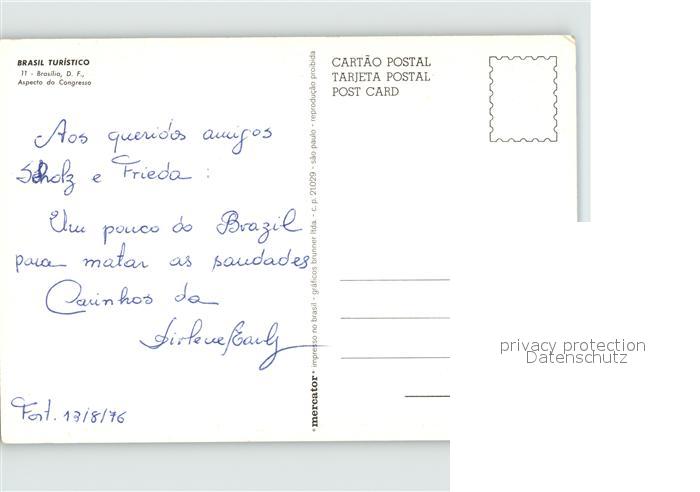 BRASIL TURÍSTICO
11 - Brasília, D. F.,
Aspecto do Congresso
Aos queridos amigos
Scholz e Frieda :
Um pouco do Brazil
para matar as saudades
Carinhos da
Fort. 13/8/76
mercator® impresso no brasil - gráficos brunner ltda. - c.p. 21029 - são paulo - reprodução proibida
CARTÃO POSTAL
TARJETA POSTAL
POST CARD
privacy protection
Datenschutz